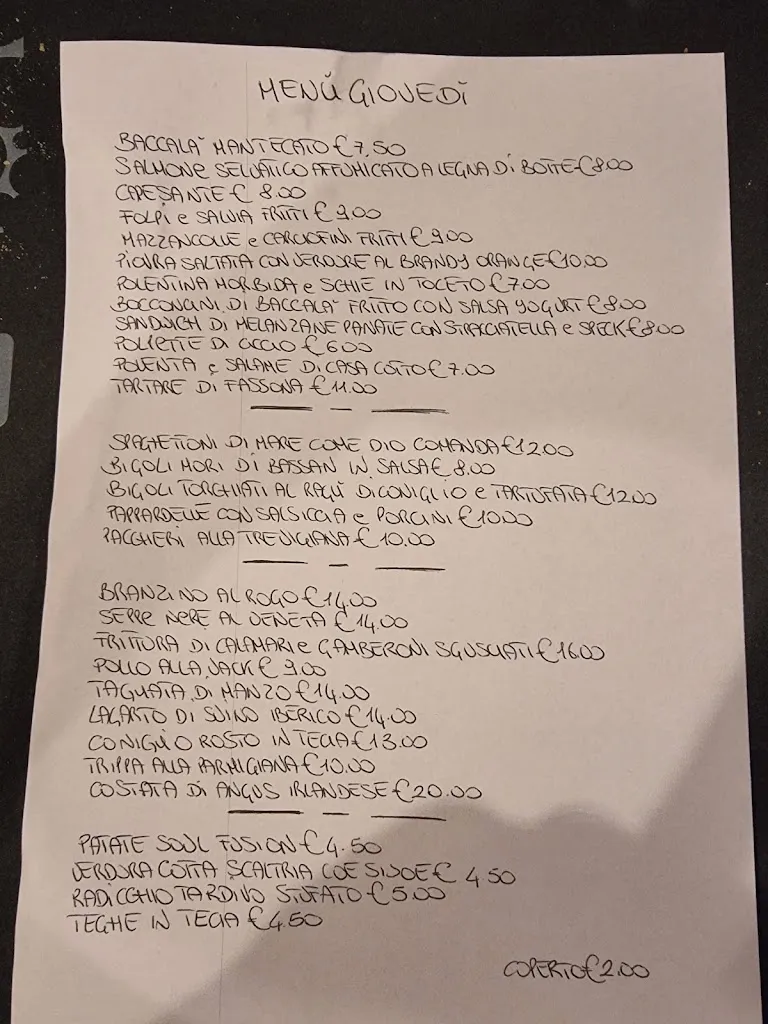 MENÙ GIOVEDÌ
BACCALÀ MANTECATO € 7,50
SALMONE SELVATICO AFFUMICATO A LEGNA DI BOTTE € 8.00
CAPESANTE € 8.00
FOLPI e SALVIA FRITTI € 9.00
MAZZANCOLLE e CARCIOFINI FRITTI € 9.00
PIOVRA SALTATA CON VERDURE AL BRANDY ORANGE € 10.00
POLENTINA MORBIDA e SCHIE IN TOCETO € 7.00
BOCCONCINI DI BACCALÀ FRITTO CON SALSA YOGURT € 8.00
SANDWICH DI MELANZANE PANATE CON STRACCIATELLA e SPECK € 8.00
POLPETTE DI CICCIO € 6.00
POLENTA e SALAME DI CASA COTTO € 7.00
TARTARE DI FASSONA € 11.00
SPAGHETTONI DI MARE COME DIO COMANDA € 12.00
BIGOLI MORI DI BASSAN IN SALSA € 8.00
BIGOLI TORCHIATI AL RAGÙ DI CONIGLIO e TARTUFATA € 12.00
PAPPARDELLE CON SALSICCIA e PORCINI € 10.00
PACCHERI ALLA TREVIGIANA € 10.00
BRANZINO AL ROGO € 14,00
SEPPE NERE AL VENETA € 14.00
FRITTURA DI CALAMARI e GAMBERONI SGUSCIATI € 16.00
POLLO ALLA JACK € 9.00
TAGLIATA DI MANZO € 14.00
LAGARTO DI SUINO IBERICO € 14.00
CONIGLIO ROSTO IN TECIA € 13.00
TRIPPA ALLA PARMIGIANA € 10.00
COSTATA DI ANGUS IRLANDESE € 20.00
PATATE SOUL FUSION € 4.50
VERDURA COTTA SCALTRIA COE SIVOE € 4.50
RADICCHIO TARDIVO STUFATO € 5.00
TEGHE IN TECIA € 4.50
COPERTO € 2.00